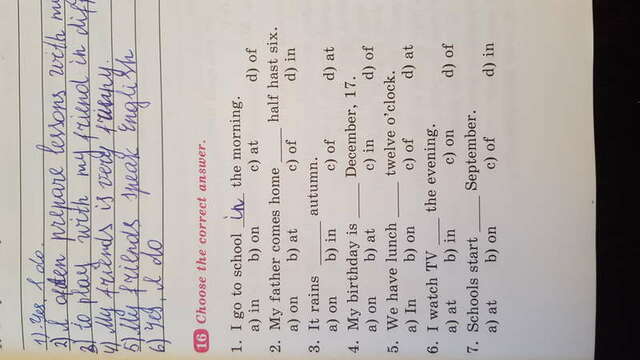 1) Yes, I do.
2) I often prepare lessons with my
3) to play with my friend in diff
4) My friends is very funny.
5) My friends speak English
6) Yes, I do
16 Choose the correct answer.
1. I go to school in the morning.
a) in b) on c) at d) of
2. My father comes home ____ half hast six.
a) on b) at c) of d) in
3. It rains ____ autumn.
a) on b) in c) of d) at
4. My birthday is ____ December, 17.
a) on b) at c) in d) of
5. We have lunch ____ twelve o'clock.
a) In b) on c) of d) at
6. I watch TV ____ the evening.
a) at b) in c) on d) of
7. Schools start ____ September.
a) at b) on c) of d) in